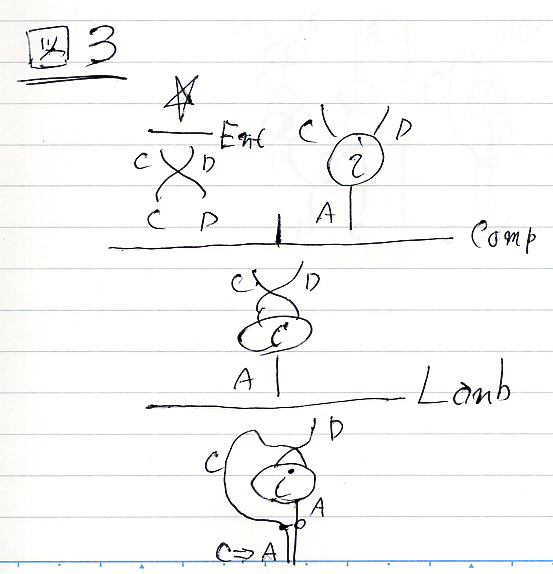 図 3
☆
Exc C D
C D i
C D A
Comp
C D
i
A
Lamb
D
C i
A
C ⇒ A